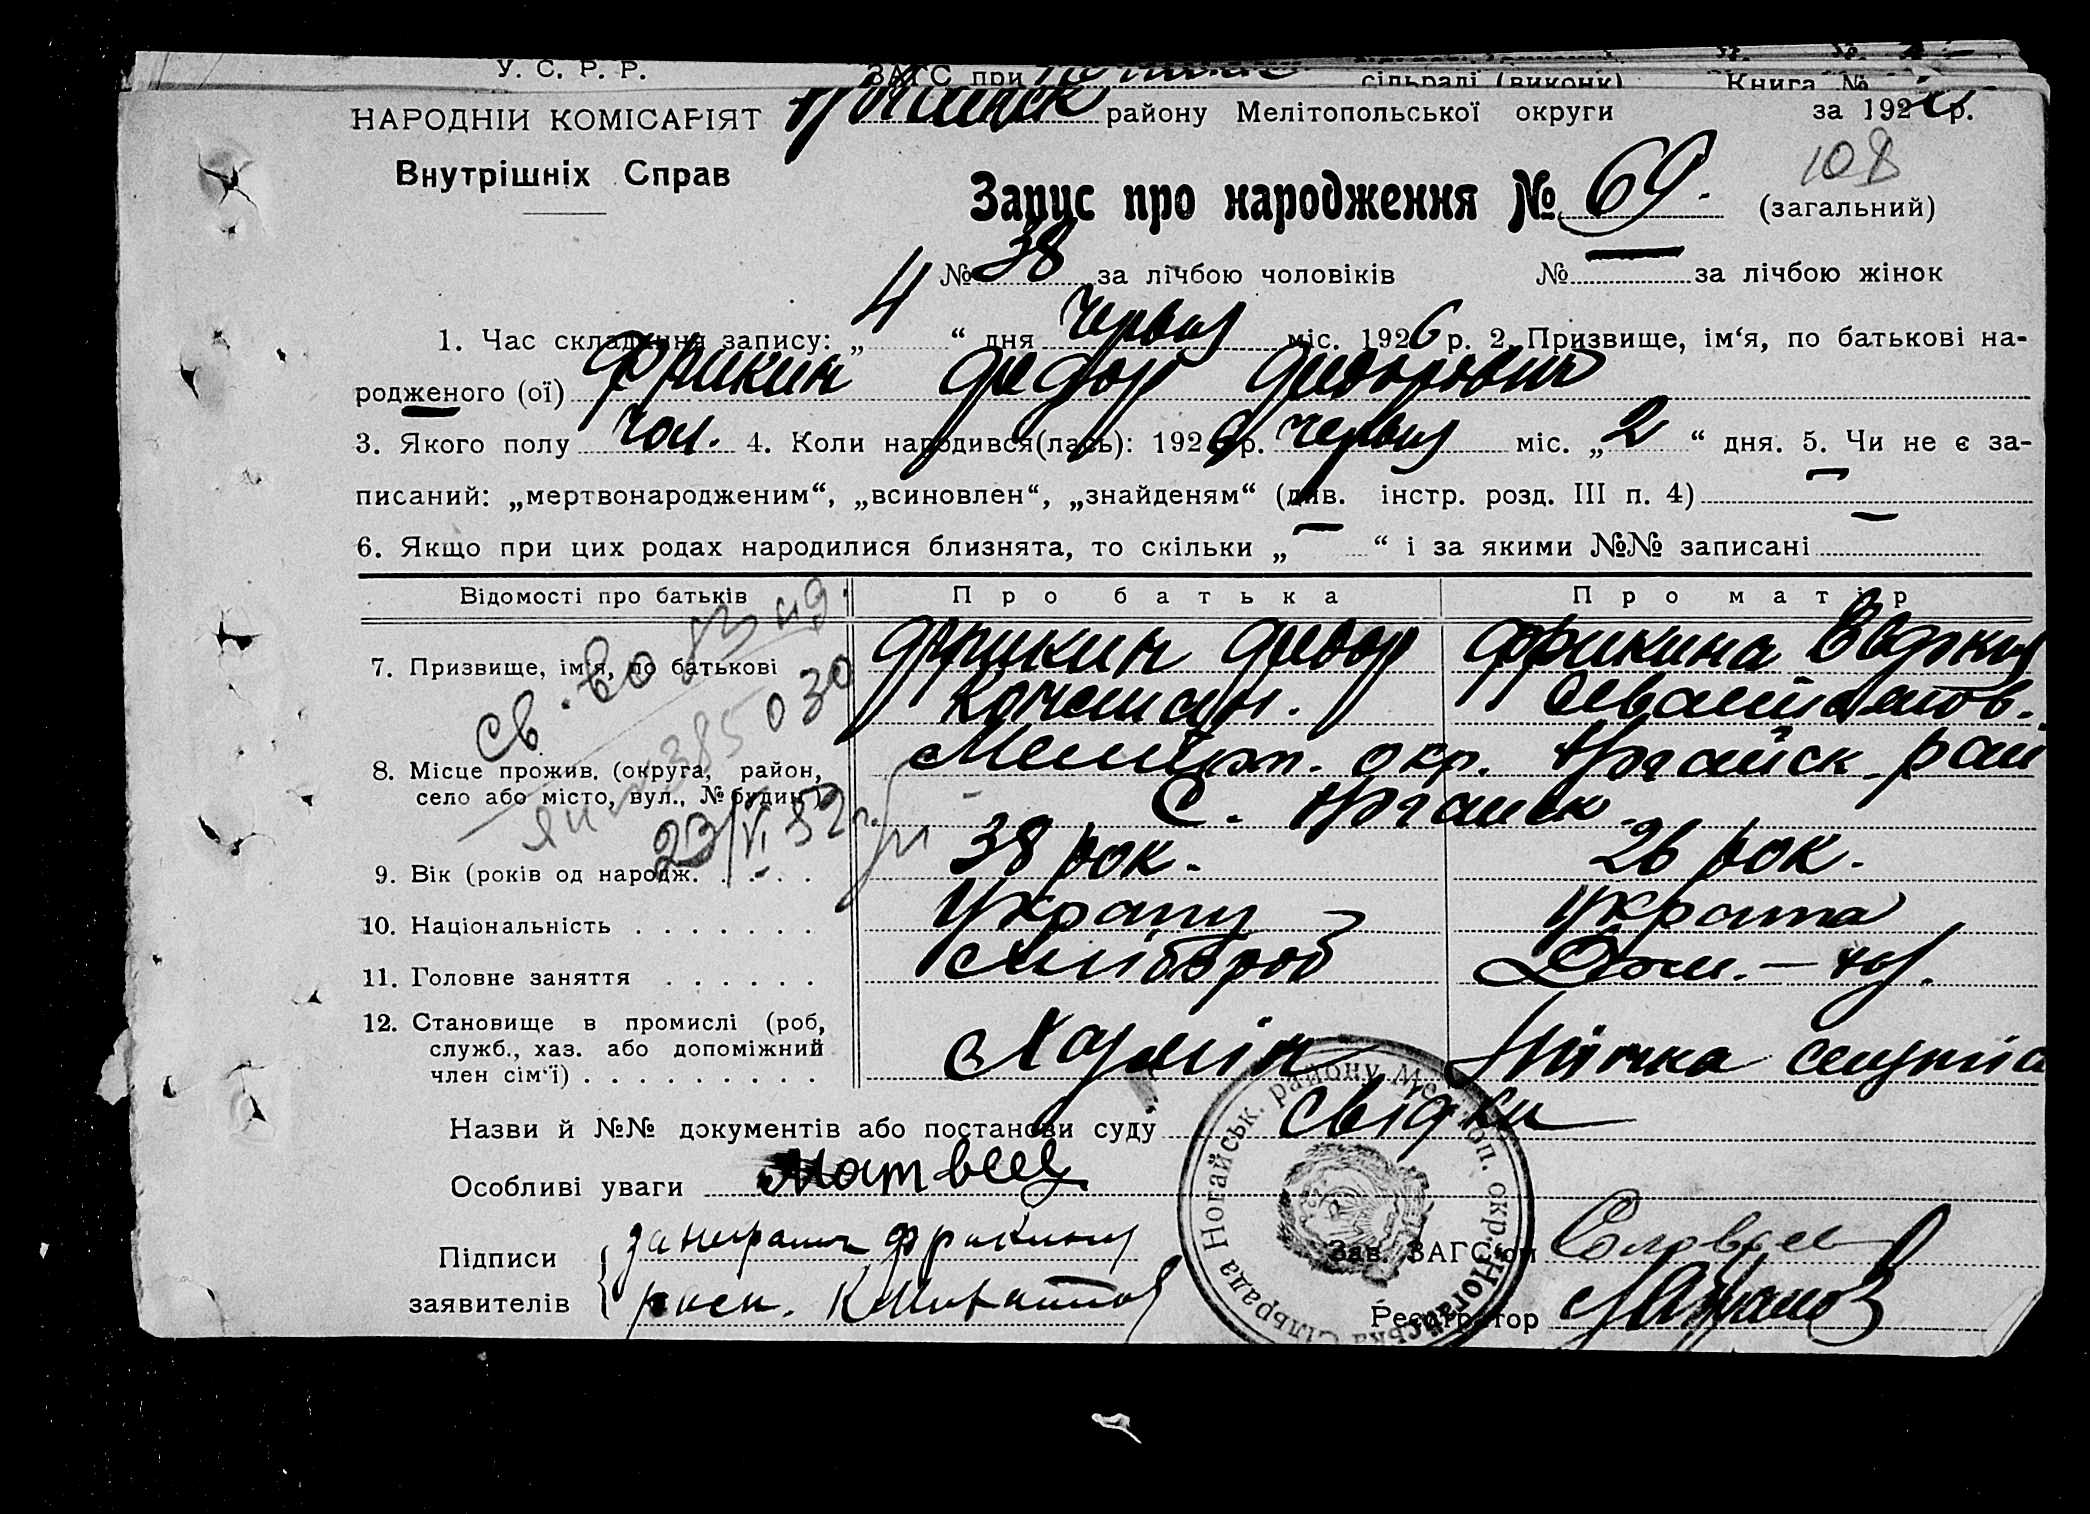 У. С. Р. Р. ЗАГС при сільраді (виконк) Книга №
НАРОДНІЙ КОМІСАРІЯТ району Мелітопольської округи за 192 р.
Внутрішніх Справ
108
Запис про народження № 69. (загальний)
№ 38 за лічбою чоловіків № — за лічбою жінок
1. Час складання запису: „ 4 “ дня Червня міс. 1926 р. 2. Призвище, ім‘я, по батькові на-
родженого (ої) Фрикин Федор Федорович
3. Якого полу чол. 4. Коли народився(лась): 1926 р. Червня міс. „ 2 “ дня. 5. Чи не є за-
писаний: „мертвонародженим“, „всиновлен“, „знайденям“ (див. інстр. розд. III п. 4) —
6. Якщо при цих родах народилися близнята, то скільки „ — “ і за якими №№ записані —
Відомості про батьків Про батька Про матір
7. Призвище, ім‘я, по батькові Фрикин Федор Фрикина
св.
385030
8. Місце прожив. (округа, район, Меліт. окр. Ногайск. рай
село або місто, вул., № будин.) С. Ногайск
23/VI 52 г.
9. Вік (років од народж. . . . . . 38 рок. 26 рок.
10. Національність . . . . . . .
11. Головне заняття . . . . . . Хлібороб Дом. —
12. Становище в промислі (роб,
служб., хаз. або допоміжний Хазяїн
член сім‘ї) . . . . . . . . . .
Назви й №№ документів або постанови суду свідки
Особливі уваги Матвеев
Підписи
заявителів
Зав. ЗАГС‘ом Соловьев
Реєстратор
Ногайська Сільрада Ногайськ. району Мелітоп. окр.